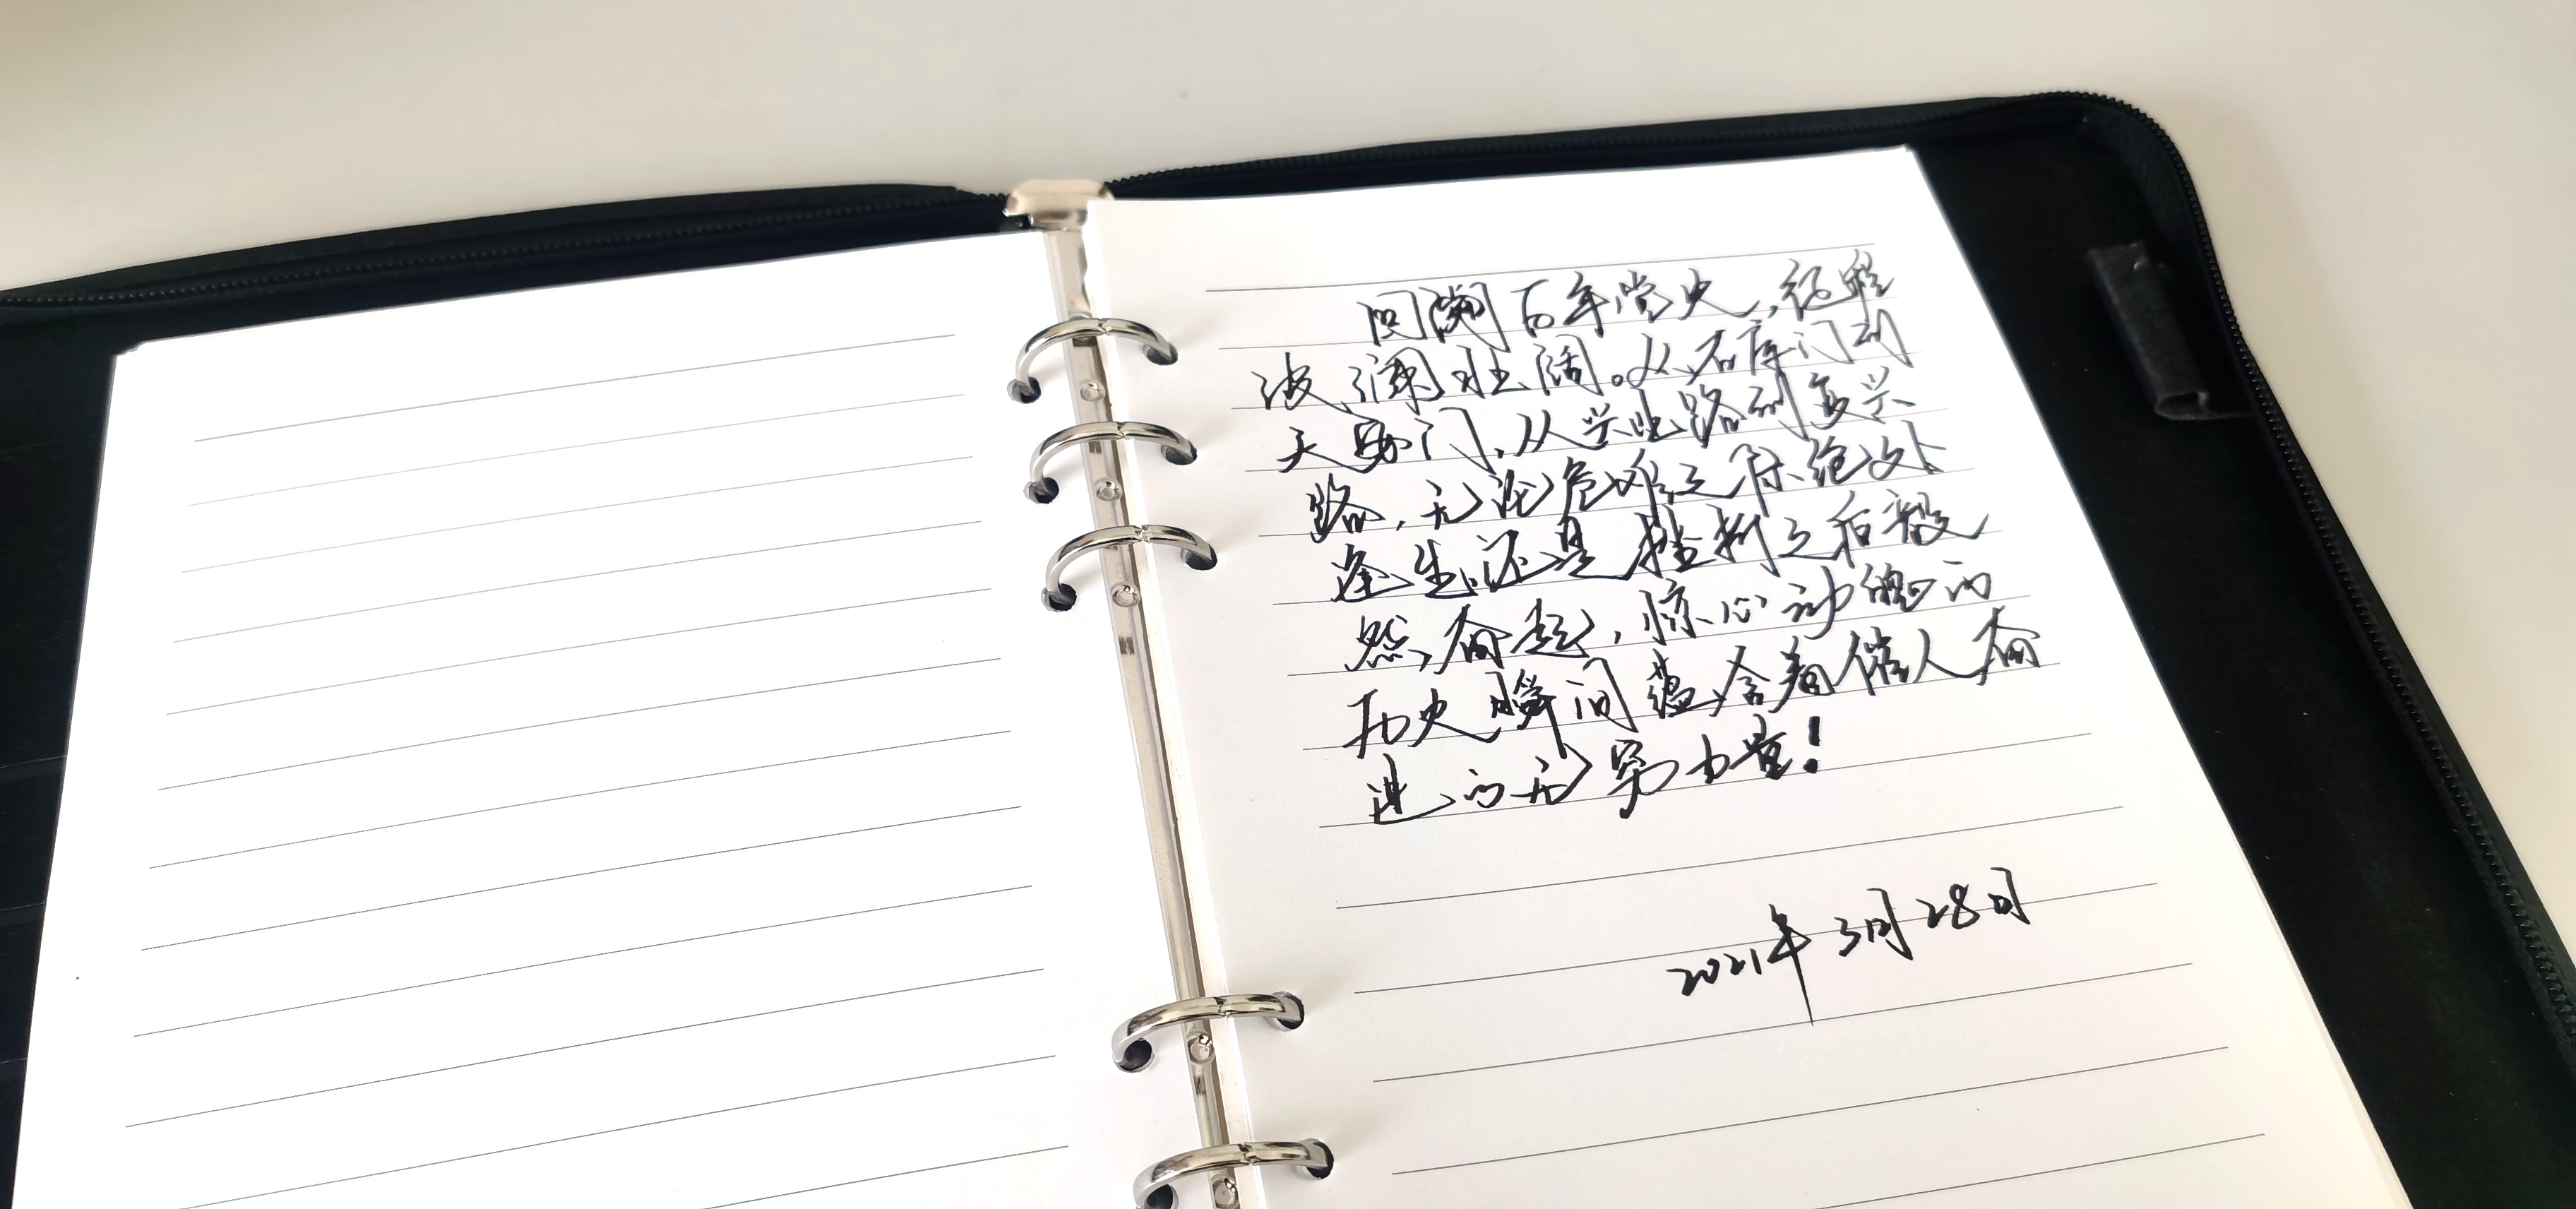 回阅百年党史,征程
波澜壮阔。从石库门到
天安门,从兴业路到复兴
路,无论危难之际绝处
逢生,还是挫折之后毅
然奋起,惊心动魄的
历史瞬间蕴含着催人奋
进的无穷力量!
2021年3月28日